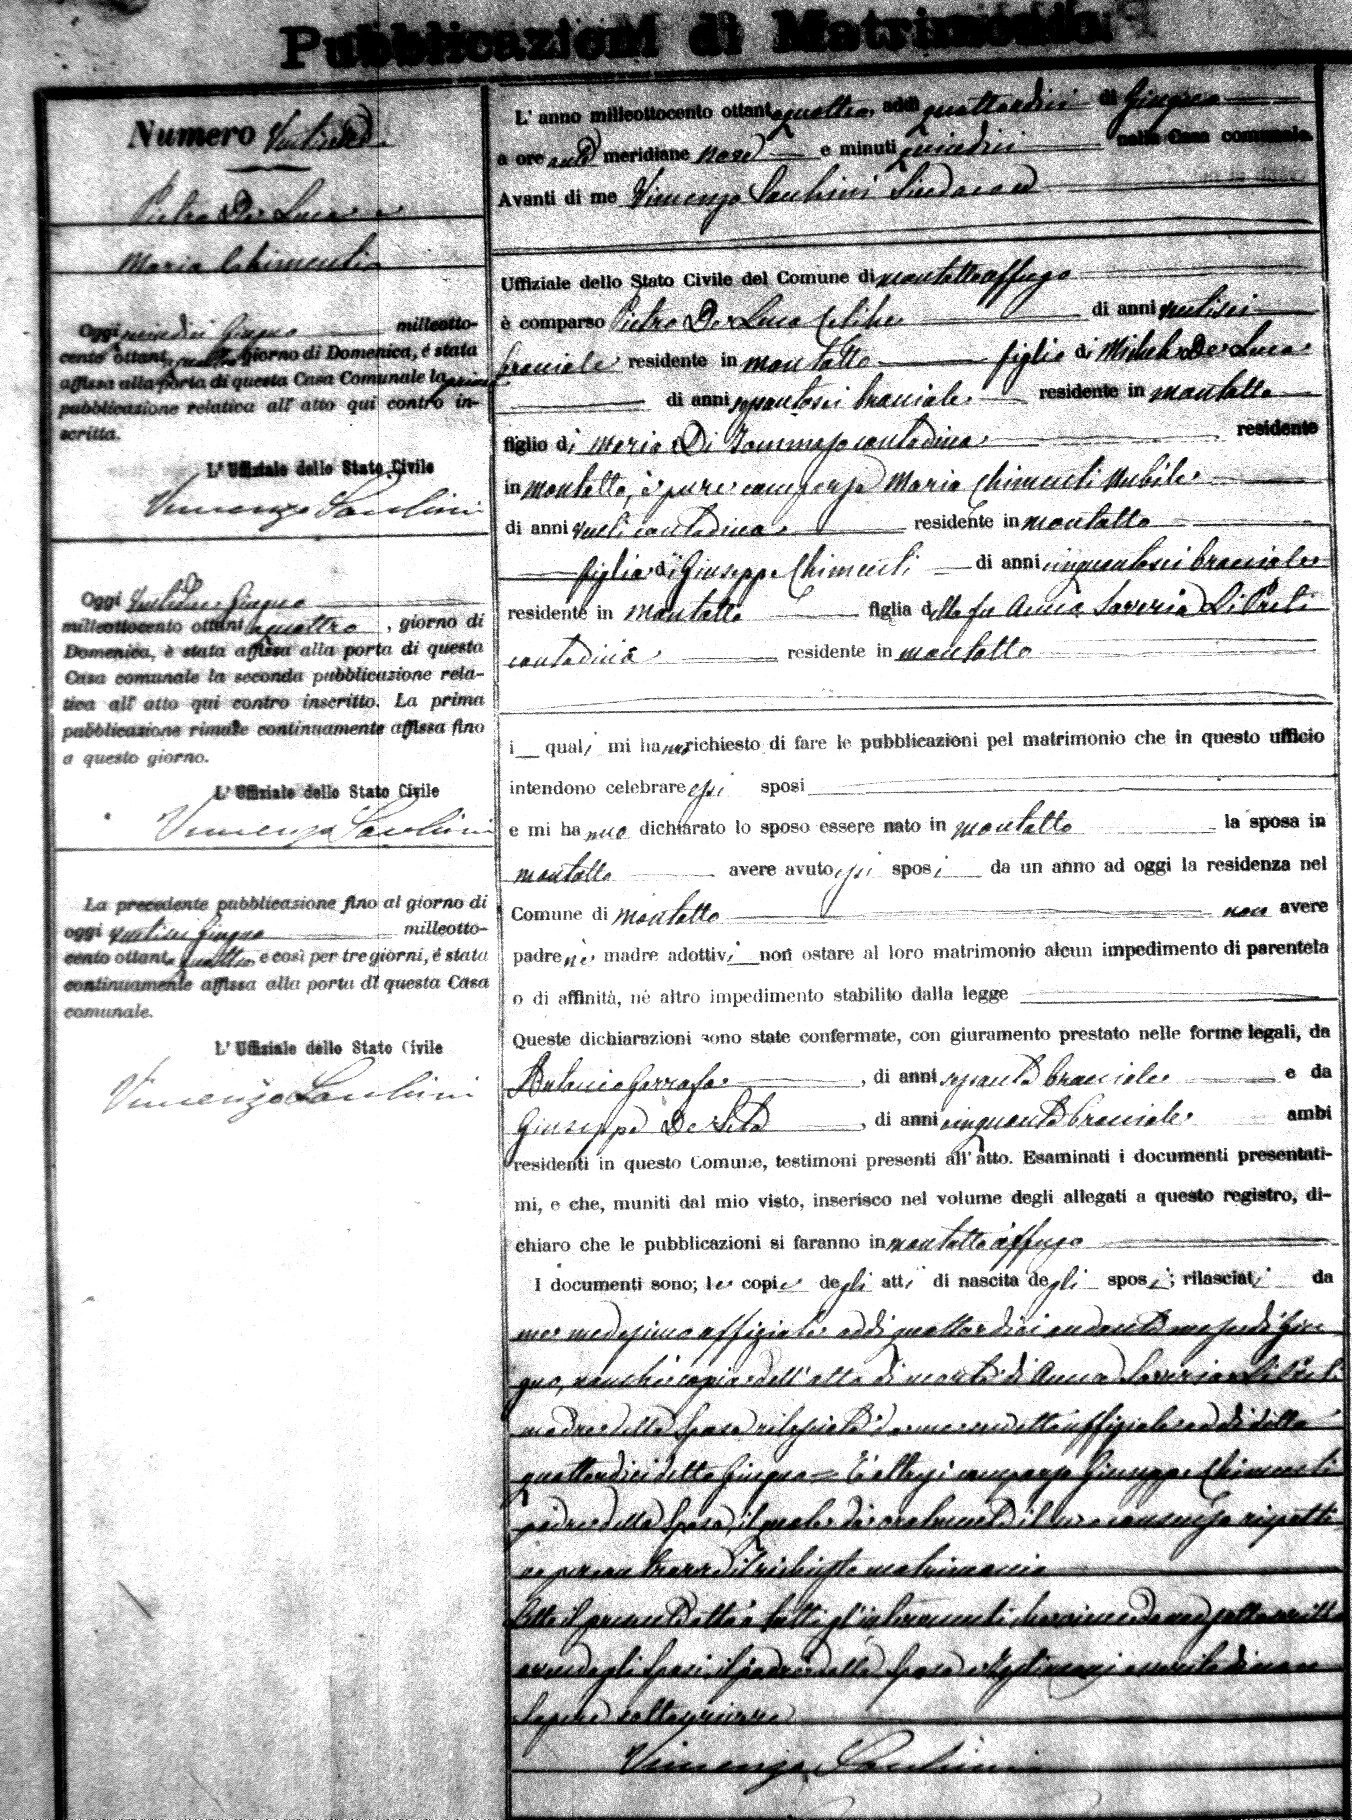 Pubblicazioni di Matrimonio
Numero
Pietro De Luca e
Maria Chimenti
Oggi quindici Giugno milleotto-
cento ottantaquattro giorno di Domenica, é stata
affissa alla porta di questa Casa Comunale la prima
pubblicazione relativa all' atto qui contro in-
scritta.
L' Uffiziale dello Stato Civile
Vincenzo
Oggi Giugno
milleottocento ottantaquattro, giorno di
Domenica, è stata affissa alla porta di questa
Casa comunale la seconda pubblicazione rela-
tiva all' atto qui contro inscritto. La prima
pubblicazione rimase continuamente affissa fino
a questo giorno.
L' Uffiziale dello Stato Civile
Vincenzo
La precedente pubblicazione fino al giorno di
oggi ventisei Giugno milleotto-
cento ottantaquattro e così per tre giorni, é stata
continuamente affissa alla porta di questa Casa
comunale.
L' Uffiziale dello Stato Civile
Vincenzo
L' anno milleottocento ottantaquattro, addì quattordici di Giugno
a ore ante meridiane nove e minuti quindici nella Casa comunale.
Avanti di me Vincenzo Sindaco
Uffiziale dello Stato Civile del Comune di Montalto Uffugo
è comparso Pietro De Luca Celibe di anni ventisei
bracciale residente in Montalto figlio di Michele De Luca
di anni bracciale residente in Montalto
figlio di Maria Di Tommaso contadina residente
in Montalto, è pure comparsa Maria Chimenti Nubile
di anni venti contadina residente in Montalto
figlia di Giuseppe Chimenti di anni cinquantasei bracciale
residente in Montalto figlia della fu Anna Saveria
contadina residente in Montalto
i quali mi hanno richiesto di fare le pubblicazioni pel matrimonio che in questo ufficio
intendono celebrare essi sposi
e mi hanno dichiarato lo sposo essere nato in Montalto la sposa in
Montalto avere avuto essi sposi da un anno ad oggi la residenza nel
Comune di Montalto non avere
padre nè madre adottivi non ostare al loro matrimonio alcun impedimento di parentela
o di affinità, né altro impedimento stabilito dalla legge
Queste dichiarazioni sono state confermate, con giuramento prestato nelle forme legali, da
, di anni bracciale e da
Giuseppe De , di anni cinquanta bracciale ambi
residenti in questo Comune, testimoni presenti all' atto. Esaminati i documenti presentati-
mi, e che, muniti dal mio visto, inserisco nel volume degli allegati a questo registro, di-
chiaro che le pubblicazioni si faranno in Montalto Uffugo
I documenti sono; le copie degli atti di nascita degli sposi; rilasciati da
me medesimo uffiziale addì quattordici andante mese di Giu
gno, nonchè copia dell'atto di morte di Anna Saveria
madre della Sposa rilasciata da me suddetto uffiziale addì detto
quattordici detto Giugno = È altresì comparso Giuseppe Chimenti
padre della Sposa, il quale dà oralmente il suo consenso rispetti
vo per contrarre il richiesto matrimonio
Letto il presente atto a tutti gl'intervenuti
avendo gli Sposi, il padre della Sposa e testimoni asserito di non
sapere sottoscrivere
Vincenzo